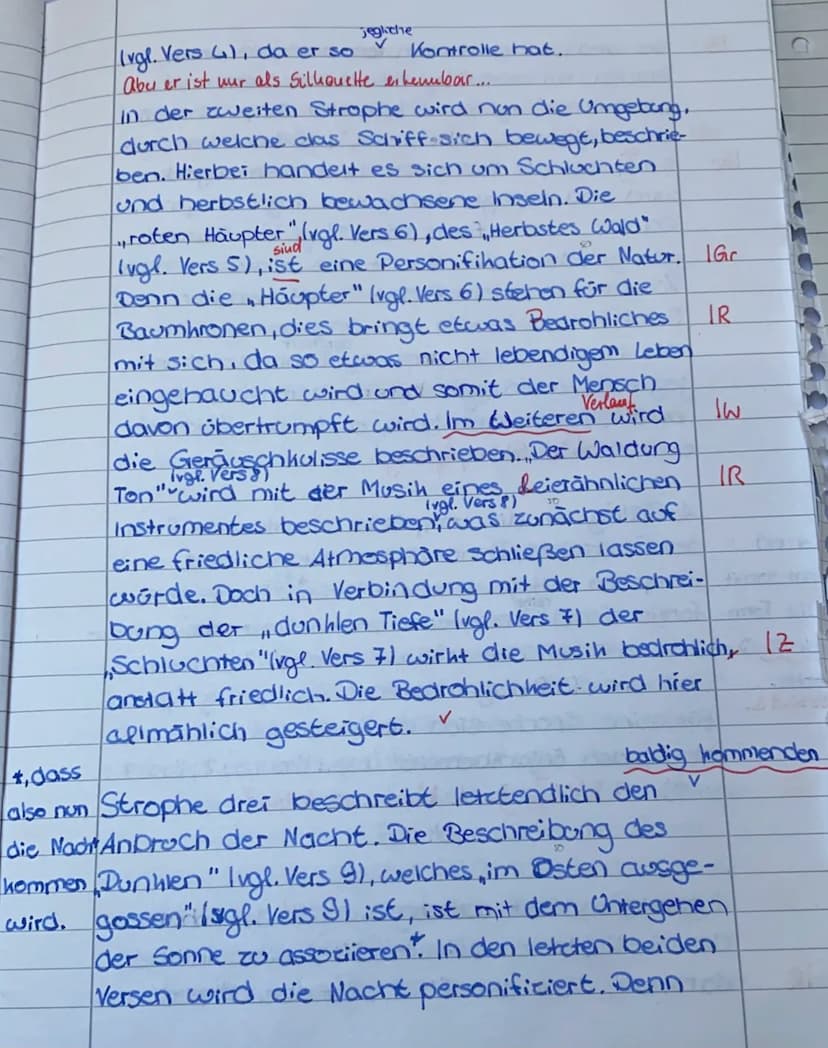 jegliche
(vgl. Vers 4), da er so ˅ Kontrolle hat.
Aber er ist nur als Silhouette erkennbar...
In der zweiten Strophe wird nun die Umgebung,
durch welche das Schiff sich bewegt, beschrie-
ben. Hierbei handelt es sich um Schluchten
und herbstlich bewachsene Inseln. Die
„roten Häupter" (vgl. Vers 6), des „Herbstes Wald"
sind
(vgl. Vers 5), ist eine Personifikation der Natur. | Gr
Denn die „Häupter" (vgl. Vers 6) stehen für die
Baumkronen, dies bringt etwas Bedrohliches | R
mit sich, da so etwas nicht lebendigem Leben
eingehaucht wird und somit der Mensch
Verlauf
davon übertrumpft wird. Im Weiteren wird | W
die Geräuschkulisse beschrieben. „Der Waldung
(vgl. Vers 8)
Ton" wird mit der Musik eines leierähnlichen | R
(vgl. Vers 8)
Instrumentes beschrieben, was zunächst auf
eine friedliche Atmosphäre schließen lassen
würde. Doch in Verbindung mit der Beschrei-
bung der „dunklen Tiefe" (vgl. Vers 7) der
„Schluchten" (vgl. Vers 7) wirkt die Musik bedrohlich, | Z
anstatt friedlich. Die Bedrohlichkeit wird hier
allmählich gesteigert. ✓
baldig kommenden
*, dass
also nun
die Nacht
kommen
wird.
Strophe drei beschreibt letztendlich den ˅
Anbruch der Nacht. Die Beschreibung des
„Dunklen" (vgl. Vers 9), welches „im Osten ausge-
gossen" (vgl. Vers 9) ist, ist mit dem Untergehen
der Sonne zu assoziieren*. In den letzten beiden
Versen wird die Nacht personifiziert. Denn